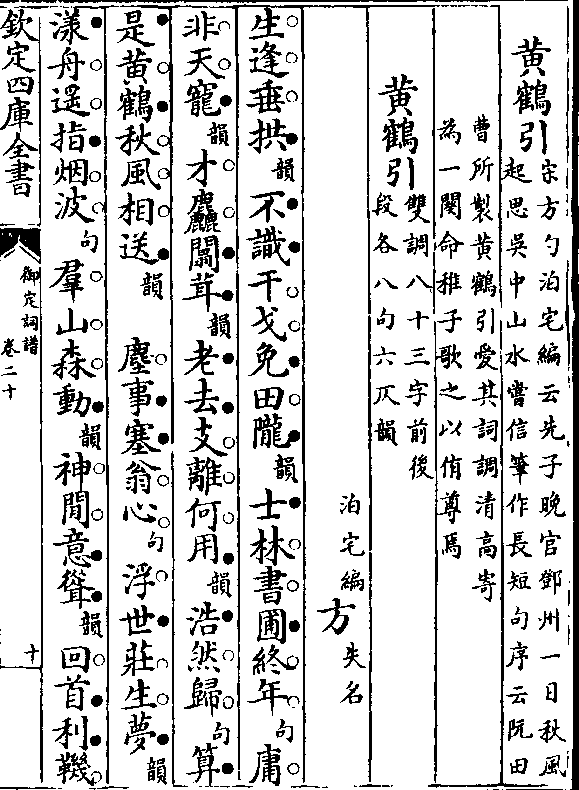 黄鶴引宋方勺泊宅編云先子晚官鄧州一日秋風
起思吳中山水嘗信筆作長短句序云阮田
曹所製黄鶴引愛其詞調清高寄
為一闋命稚子歌之以侑尊焉
黄鶴引雙調八十三字前後
段各八句六仄韻
泊宅編方失名
生逢垂拱韻不識干戈免田隴韻士林書圃終年句庸
非天寵韻才麤闒茸韻老去支離何用韻浩然歸句算
是黄鶴秋風相送韻 塵事塞翁心句浮世莊生夢韻
漾舟遥指烟波句羣山森動韻神閒意聳韻回首利鞿
欽定四庫全書
御定詞譜
卷二十
十